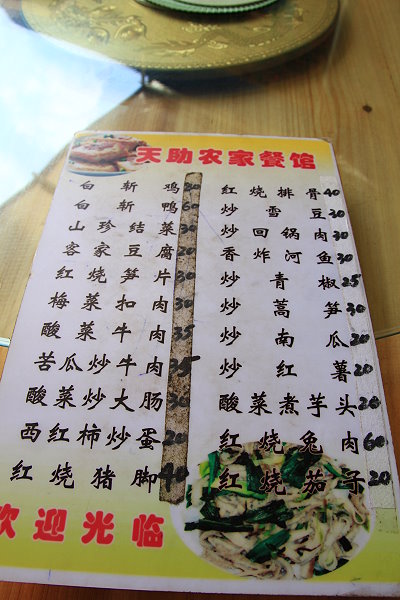 天助农家餐馆
白斩鸡30
白斩鸭60
山珍结菜30
客家豆腐20
红烧笋片30
梅菜扣肉30
酸菜牛肉35
苦瓜炒牛肉35
酸菜炒大肠30
西红柿炒蛋20
红烧猪脚40
红烧排骨40
炒雪豆30
炒回锅肉30
香炸河鱼30
炒青椒25
炒蒿笋30
炒南瓜20
炒红薯20
酸菜煮芋头20
红烧兔肉60
红烧茄子20
欢迎光临